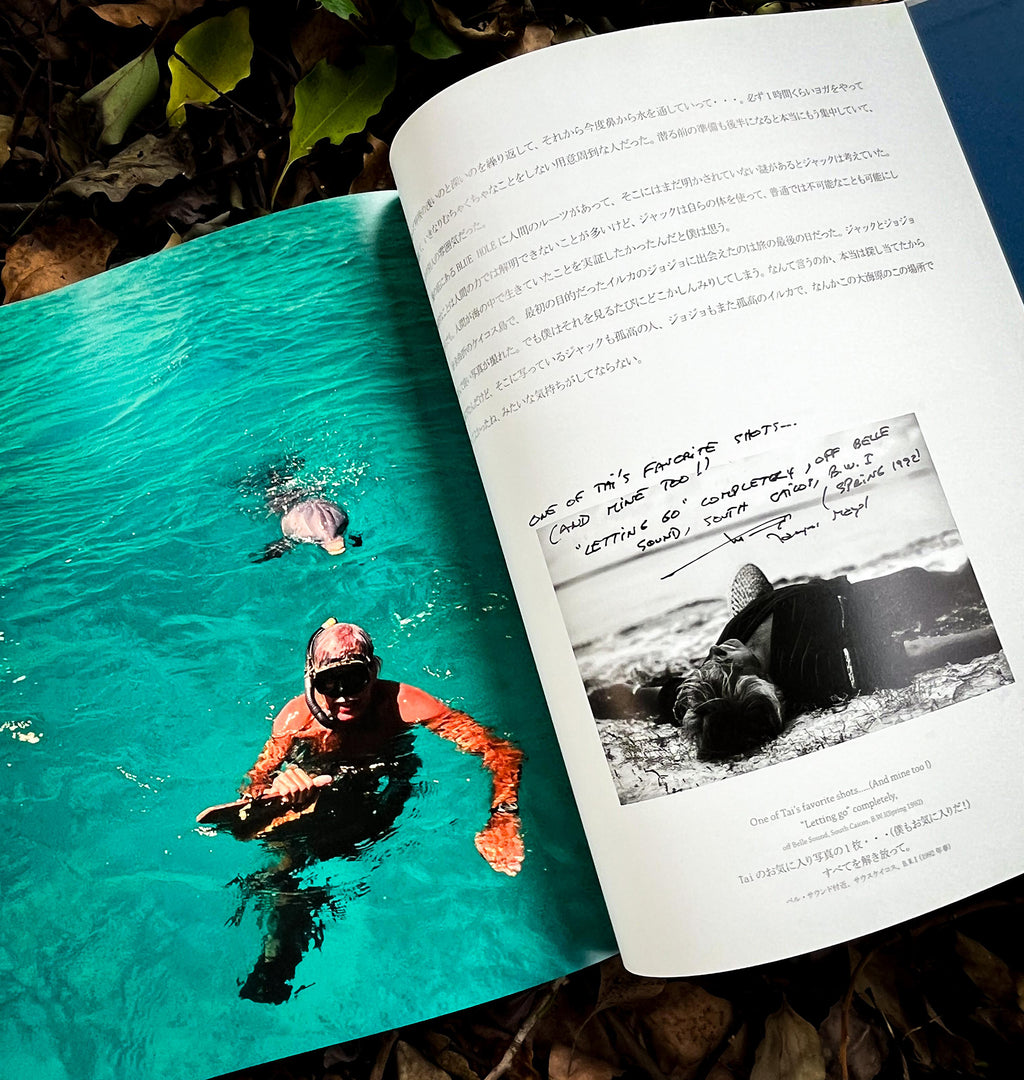 深いのを繰り返して、それから今度鼻から水を通していって・・・。必ず1時間くらいヨガをやって
いきなりむちゃくちゃなことをしない用意周到な人だった。潜る前の準備も後半になると本当にもう集中していて、
の雰囲気だった。
にあるBLUE HOLEに人間のルーツがあって、そこにはまだ明かされていない謎があるとジャックは考えていた。
は人間の力では解明できないことが多いけど、ジャックは自らの体を使って、普通では不可能なことも可能にし
人間が海の中で生きていたことを実証したかったんだと僕は思う。
のケイコス島で、最初の目的だったイルカのジョジョに出会えたのは旅の最後の日だった。ジャックとジョジョ
写真が撮れた。でも僕はそれを見るたびにどこかしんみりしてしまう。なんて言うのか、本当は探し当てたから
だけど、そこに写っているジャックも孤高の人、ジョジョもまた孤高のイルカで、なんかこの大海原のこの場所で
たね、みたいな気持ちがしてならない。
ONE OF TAI'S FAVORITE SHOTS....
(AND MINE TOO!)
"LETTING GO" COMPLETELY, OFF BELLE
SOUND, SOUTH CAICOS, B.W.I
(SPRING 1992)
Mayol
One of Tai's favorite shots.....(And mine too !)
"Letting go" completely,
off Belle Sound, South Caicos, B.W.I(Spring 1992)
Tai のお気に入り写真の1枚・・・(僕もお気に入りだ!)
すべてを解き放って。
ベル・サウンド付近、サウスケイコス、B.R.I (1992年春)